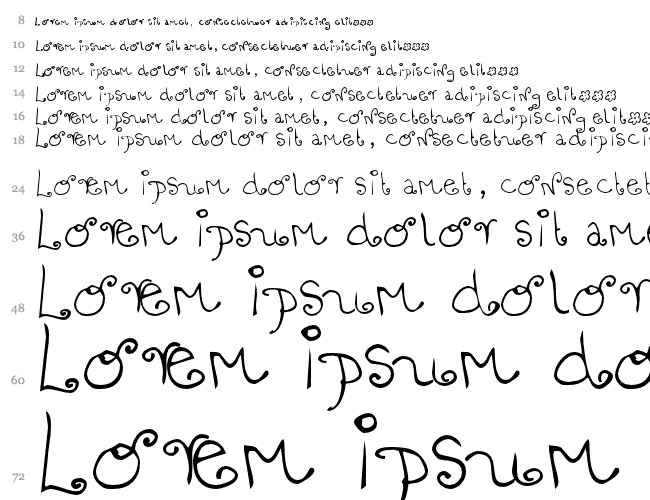 8 Lorem ipsum dolor sit amet, consectetuer adipiscing elit
10 Lorem ipsum dolor sit amet, consectetuer adipiscing elit
12 Lorem ipsum dolor sit amet, consectetuer adipiscing elit
14 Lorem ipsum dolor sit amet, consectetuer adipiscing elit
16 Lorem ipsum dolor sit amet, consectetuer adipiscing elit
18 Lorem ipsum dolor sit amet, consectetuer adipisci
24 Lorem ipsum dolor sit amet, consectet
36 Lorem ipsum dolor sit ame
48 Lorem ipsum dolor
60 Lorem ipsum do
72 Lorem ipsum